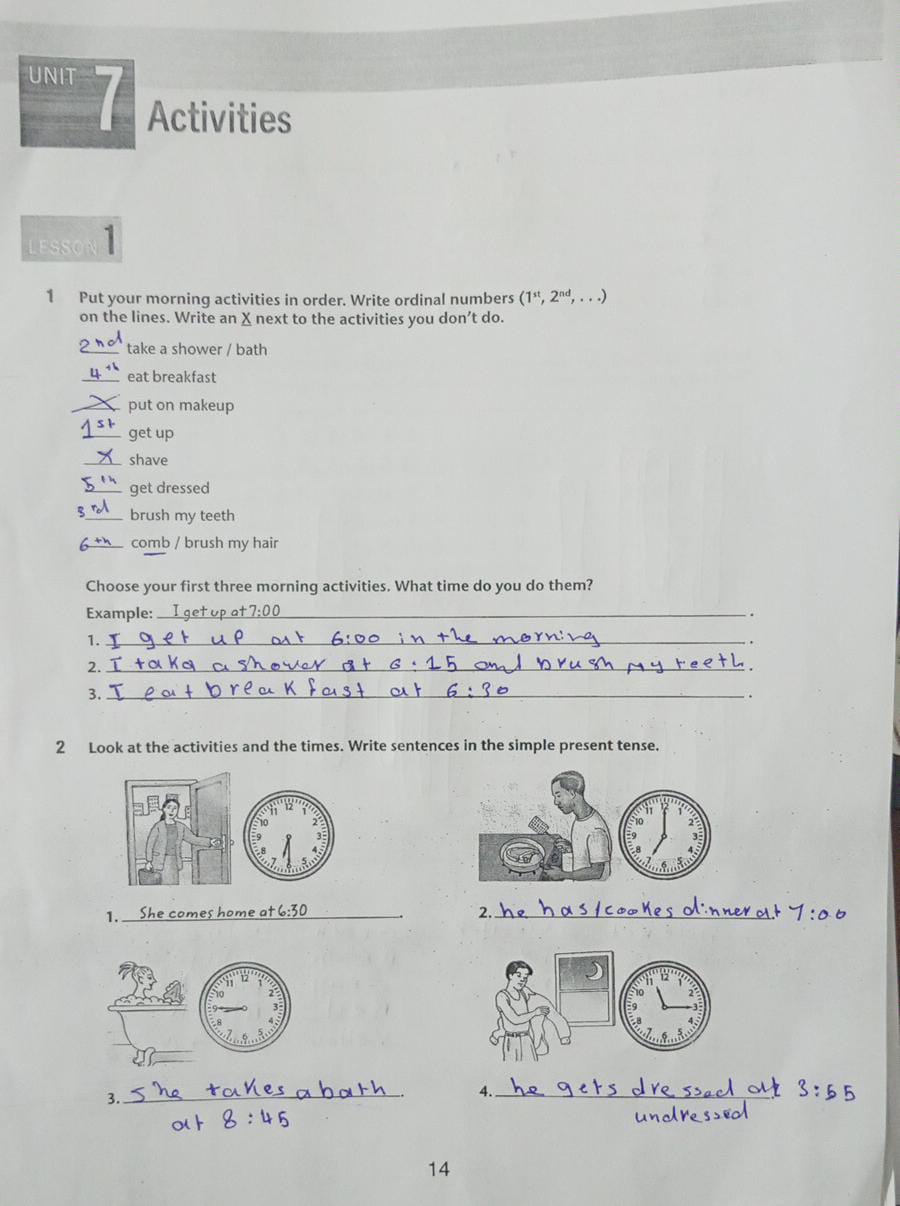 UNIT 7
Activities
LESSON 1
1 Put your morning activities in order. Write ordinal numbers (1st, 2nd, . . .)
on the lines. Write an X next to the activities you don't do.
2nd take a shower / bath
4th eat breakfast
X put on makeup
1st get up
X shave
5th get dressed
3rd brush my teeth
6th comb / brush my hair
Choose your first three morning activities. What time do you do them?
Example: I get up at 7:00 .
1. I get up at 6:00 in the morning .
2. I taka a shower at 6:15 and brush my teeth.
3. I eat breakfast at 6:30 .
2 Look at the activities and the times. Write sentences in the simple present tense.
1. She comes home at 6:30 .
2. he has/cookes dinner at 7:00
3. She takes a bath .
at 8:45
4. he gets dressed at 3:55
undressed
14